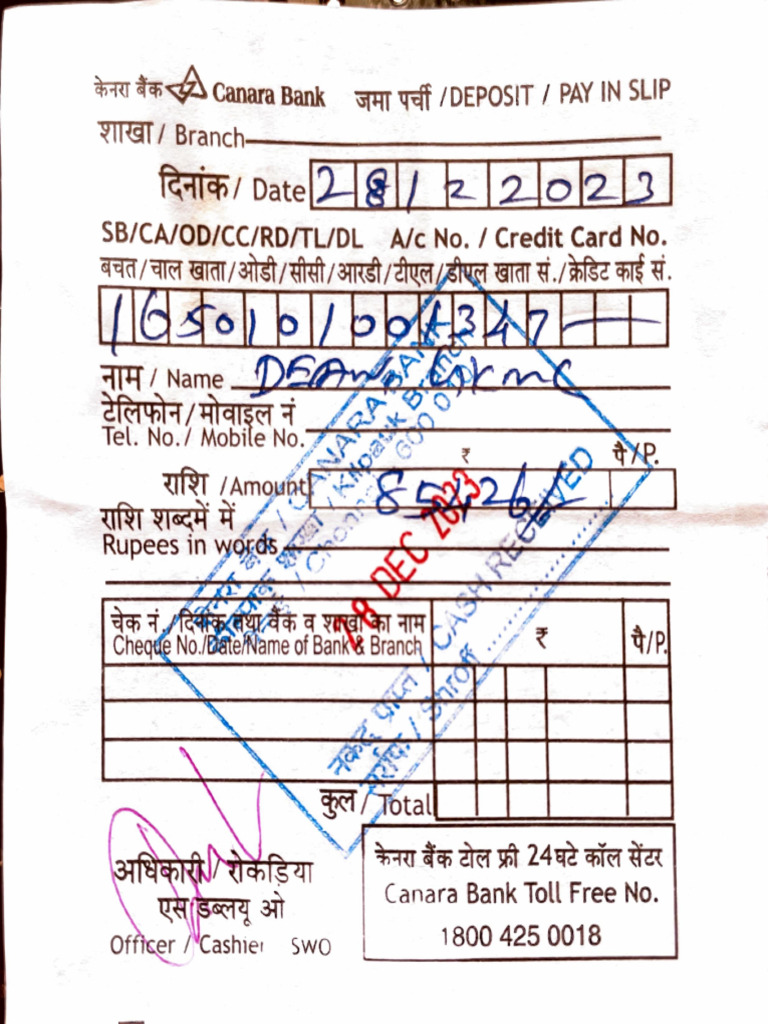 केनरा बैंक Canara Bank जमा पर्ची /DEPOSIT / PAY IN SLIP
शाखा / Branch
दिनांक / Date 28122023
SB/CA/OD/CC/RD/TL/DL A/c No. / Credit Card No.
बचत/चाल खाता/ओडी/सीसी/आरडी/टीएल/डीएल खाता सं./क्रेडिट कार्ड सं.
नाम / Name DEAN,
टेलिफोन/मोवाइल नं
Tel. No./ Mobile No.
₹ पै/P.
राशि /Amount
राशि शब्दमें में
Rupees in words
केनरा बैंक / CANARA BANK
शाखा / Kilpauk Branch
DEC 2023
नकद प्राप्त / CASH RECEIVED
सर्राफ / Shroff
चेक नं./दिनांक तथा बैंक व शाखा का नाम ₹ पै/P.
Cheque No./Date/Name of Bank & Branch
कुल / Total
अधिकारी / रोकड़िया
एस डब्लयू ओ
Officer / Cashier SWO
केनरा बैंक टोल फ्री 24घटे कॉल सेंटर
Canara Bank Toll Free No.
1800 425 0018